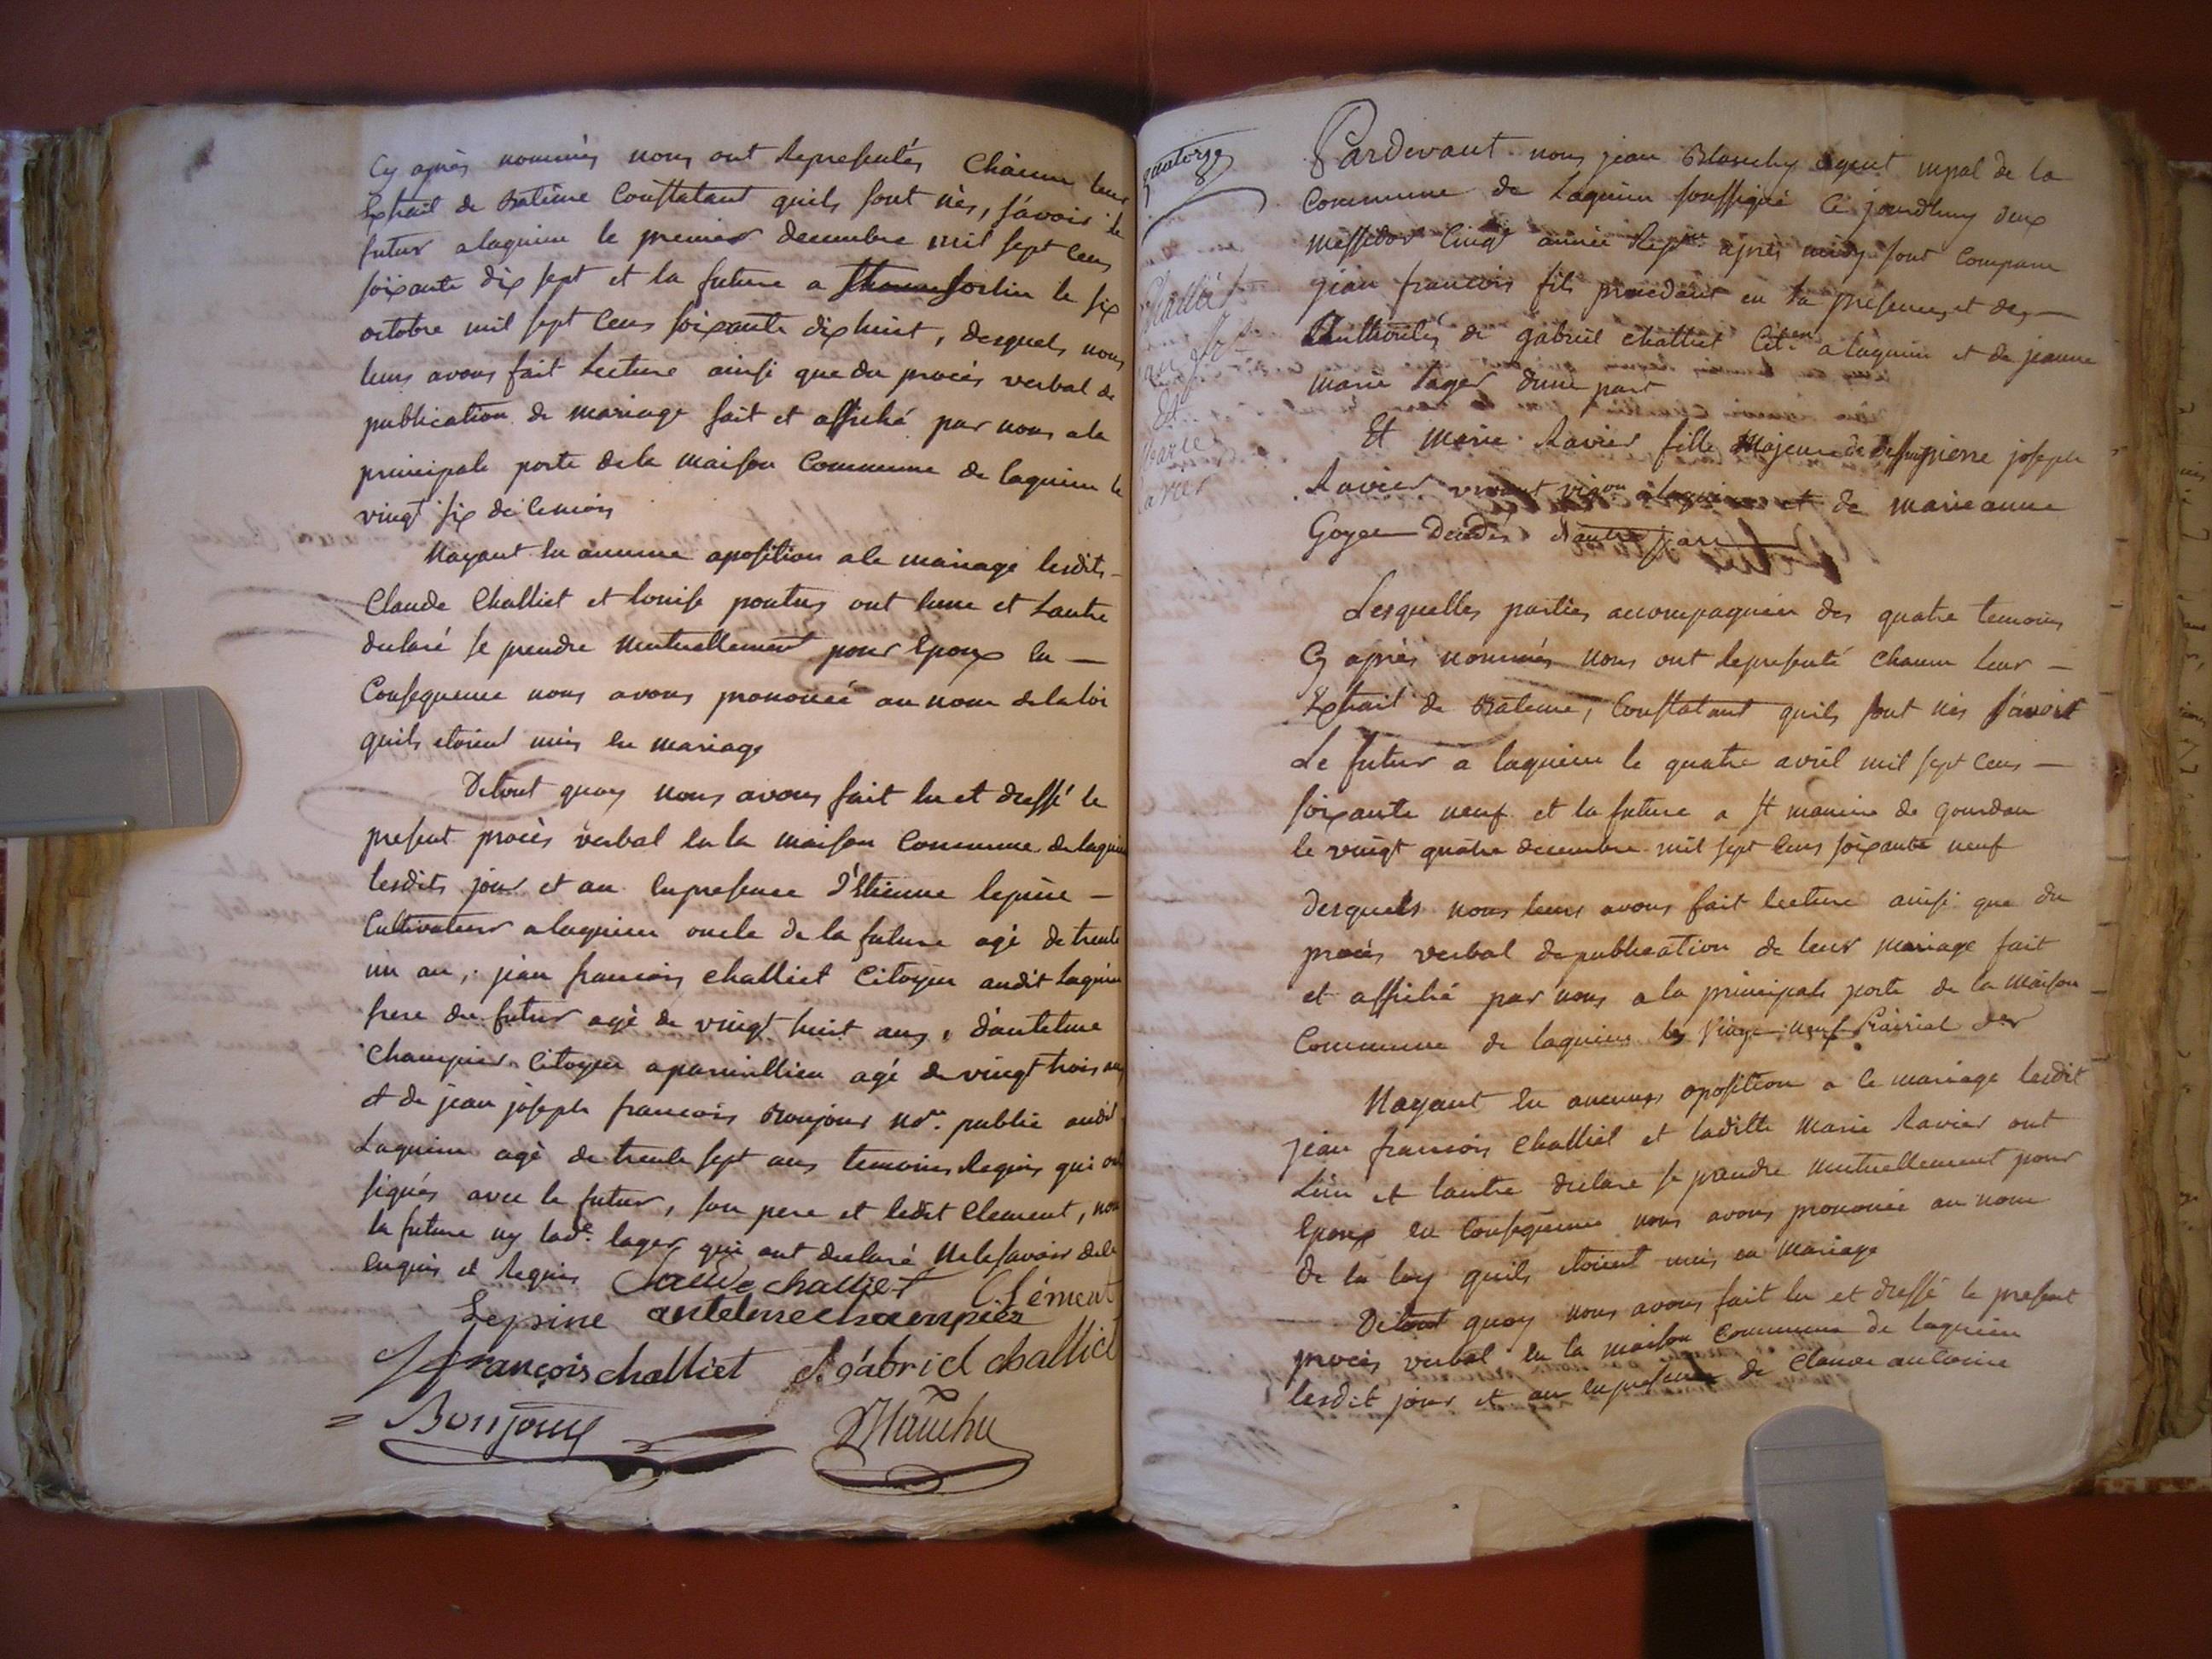 Cy après nommés nous ont Representés Chacun leur
Extrait de Batême Constatant quils sont nès, sàvoir le
futur a laguieu le premier decembre mil sept cens
soixante dix sept et la future a sorlin le six
octobre mil sept Cens soixante dix huit, desquels nous
leurs avons fait Lecture ainsi que du procès verbal de
publication de mariage fait et affiché par nous ala
principale porte dela maison Commune de laguieu le
vingt six de cemois
Nayant eu aucune oposition ale mariage lesdits -
Claude Challiet et louise pontus ont lune et Lautre
declaré se prendre mutuellement pour Epoux En -
Consequence nous avons prononcé au nom delaloi
quils étoient unis en mariage
Detout quoy nous avons fait lu et dressé le
present procès verbal en la maison Commune de laguieu
lesdits jour et an enpresence d'Etienne lepine -
Cultivateur alaguieu oncle de la future agé de trente
un an, jean francois challiet Citoyen audit Laguieu
frere du futur agé de vingt huit ans, d'antelme
Champier Citoyen agé de vingt trois ans
et de jean joseph francois Bonjour Nore. public audit
Laguieu agé de trente sept ans temoins Requis qui ont
signés avec le futur, son pere et ledit Clement, non
la future ny lade. lager qui ont declaré Nelesavoir dele
enquis et Requis Claude challiet Clément
Lepine antelme champier
J françois challiet C. gàbriel challiet
= Bonjour Blanchy
quatorze
Challiet
jean fois
Et
Marie
Ravier
Pardevant nous jean Blanchy agent mpal de la
Commune de Laguieu soussigné Ce jourdhuy deux
messidor Cinqe année Repne après midy sont Comparu
jean francois fils procedant en la presence, et des -
Authorités de gabriel challiet Citen a laguieu et de jeanne
marie lager dune part
Et Marie Ravier fille Majeure de deffunt pierre joseph
Ravier vivant vigon a laguieu et de marie anne
Goyer Decedés dautre part
Lesquelles parties accompagnées des quatre temoins
Cy après nommés nous ont Representé chacun leur -
Extrait de Batême, Constatant quils sont nés sàvoir
Le futur a laguieu le quatre avril mil sept cens -
soixante neuf et la future a st maurice de gourdan
le vingt quatre decembre mil sept cens soixante neuf
desquels nous leurs avons fait lecture ainsi que du
procés verbal de publication de leur mariage fait
et affiché par nous a la principale porte de la maison
Commune de laguieu le vingt neuf Prairial der
Nayant eu aucunes oposition a le mariage ledit
jean francois challiet et laditte Marie Ravier ont
Lun et lautre declare se prendre mutuellement pour
Epoux en Consequence nous avons prononcé au nom
de la loy quils étoient unis en mariage
Detout quoy nous avons fait lu et dressé le present
procès verbal en la maison Commune de laguieu
lesdit jour et an en presence de Claude antoine